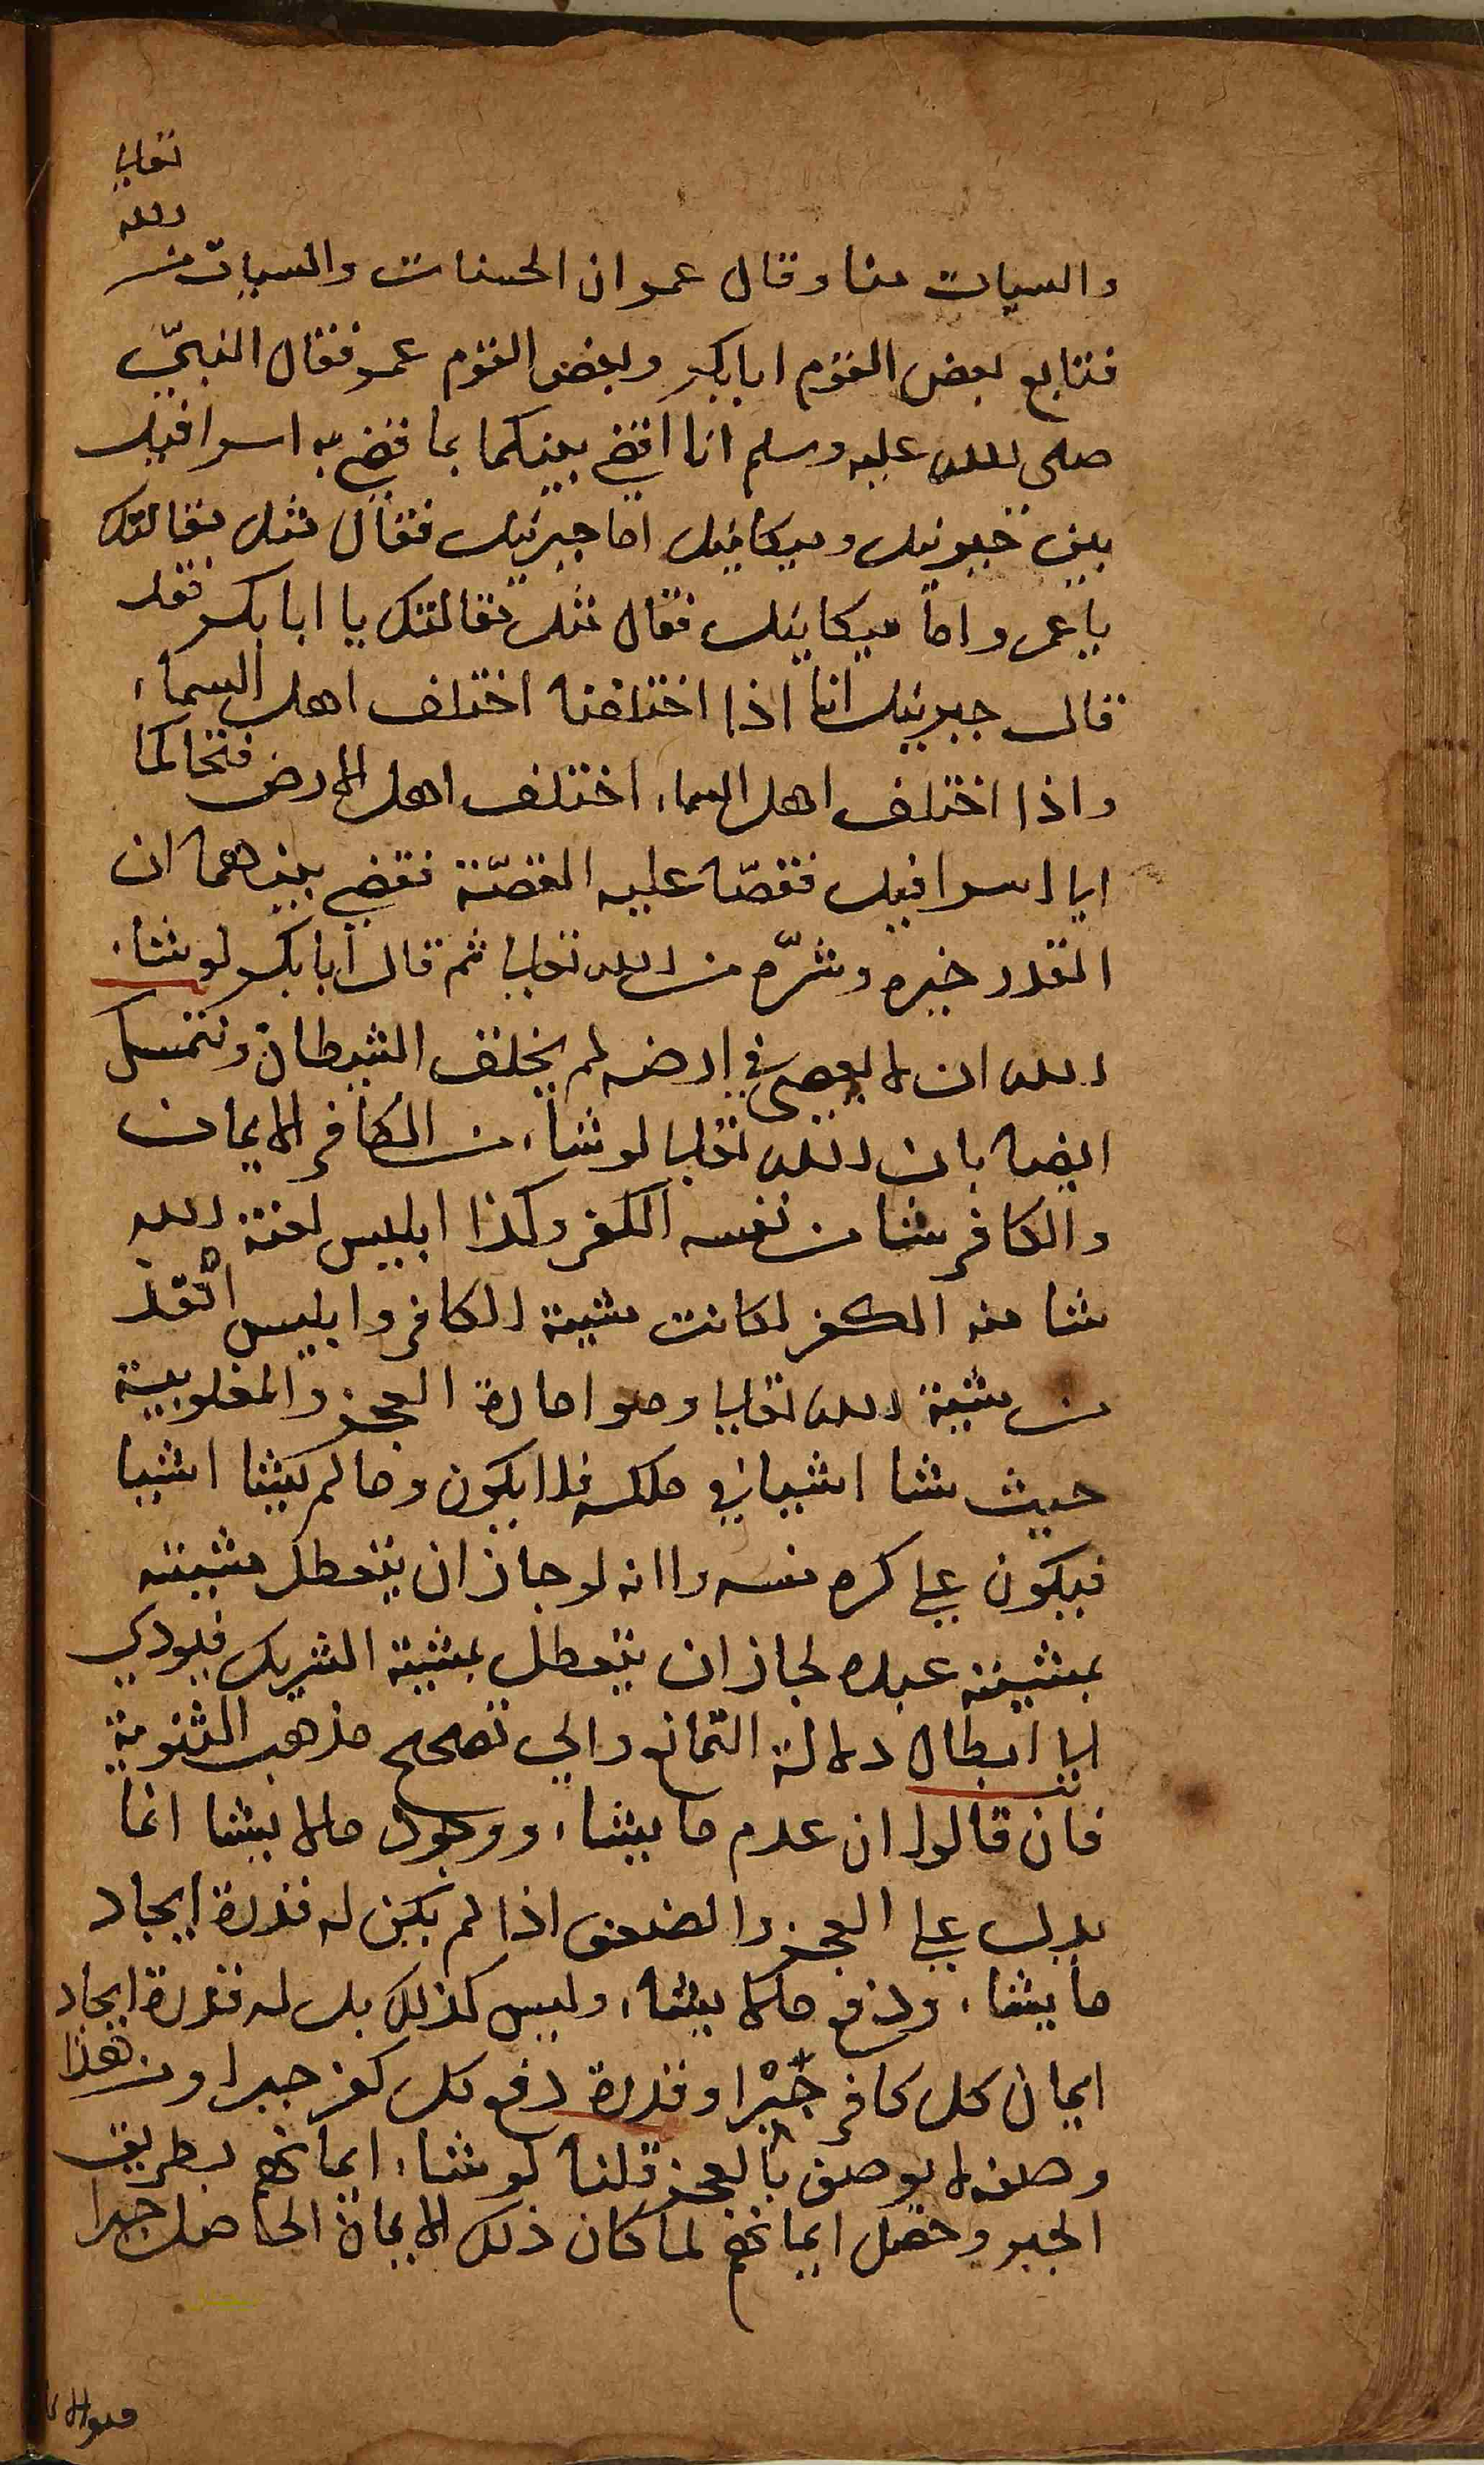 والسيات منا وقال عمر ان الحسنات والسيات من الله تعالى
فتابع بعض القوم ابابكر وبعض القوم عمر فقال النبيّ
صلى الله عليه وسلم انا اقضي بينكما بما قضي به اسرافيل
بين جبرئيل وميكائيل اما جبرئيل فقال مثل مقالتك
يا عمر واما ميكائيل فقال مثل مقالتك يا ابا بكر فقد
قال جبرئيل انا اذا اختلفنا اختلف اهل السماء
واذا اختلف اهل السماء اختلف اهل الارض فتحاكما
الى اسرافيل فقصّا عليه القصّة فقضي بينهما ان
القدر خيره وشرّه من الله تعالى ثم قال ابابكر لو شاء
الله ان لا يعصى في ارضه لم يخلق الشيطان ونتمسك
ايضا بان الله تعالى لو شاء من الكافر الايمان
والكافر شا من نفسه الكفر وكذا ابليس لعنة الله
شا منه الكفر لكانت مشية الكافر وابليس انفذ
من مشية الله تعالى وهو امارة العجز والمغلوبية
حيث شا اشيا في ملكه فلا يكون وما لم يشا اشيا
فيكون على كره منه ولانه لو جاز ان يتعطل مشيته
بمشيته عبده لجاز ان يتعطل بمشية الشريك فيودي
الى ابطال دلالة التمانع والى تصحيح مذهب الثنوية
فان قالوا ان عدم ما يشاء ووجود مالا يشا انما
يدل على العجز والضعف اذا لم يكن له قدرة ايجاد
ما يشاء ودفع مالا يشاء وليس كذلك بل له قدرة ايجاد
ايمان كل كافر جَبْرا وقدرة دفع كل كفر جبرا ومن هذا
وصفه لا يوصف بالعجز قلنا لو شاء ايمانهم بطريق
الجبر وحصل ايمانهم لما كان ذلك الايمان الحاصل جبرا